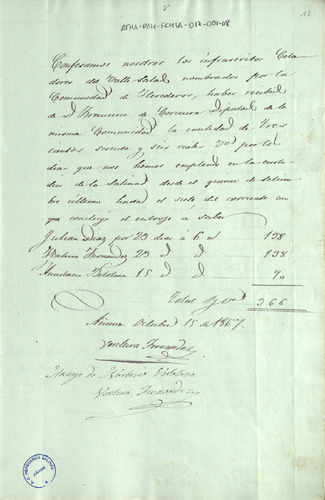 ATHA-DAH-FCHSA-017-001-08
12
Confesamos nosotros los infrascritos Cela
dores del Valle Salado nombrados por la
Comunidad de Herederos, haber recibido
de D. Francisco de Corcuera Diputado de la
misma Comunidad la cantidad de Tres
cientos sesenta y seis reales por los
dias que nos hemos empleado en la custo
dia de las Salinas desde el quince de setiem
bre ultimo hasta el siete del corriente en
que concluyó el entrego a saber
Julian Diaz por 23 dias á 6 rl 138
Ventura Fernandez 23 d d 138
15 d d 90
Total 366
Añana Octubre 15 de 1867
Ventura Fernandez
Arruego de
Ventura Fernandez